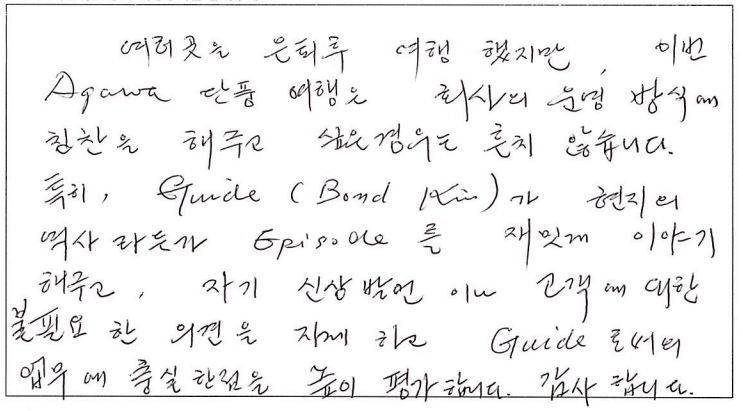 여러곳을 은퇴후 여행 했지만, 이번
Agawa 단풍 여행은 회사의 운영 방식에
칭찬을 해주고 싶은경우는 흔치 않습니다.
특히, Guide (Bond Kim)가 현지의
역사라든가 Episode를 재밋게 이야기
해주고, 자기 신상발언 이나 고객에 대한
불필요한 의견을 자제하고 Guide로써의
업무에 충실한점을 높이 평가합니다. 감사합니다.